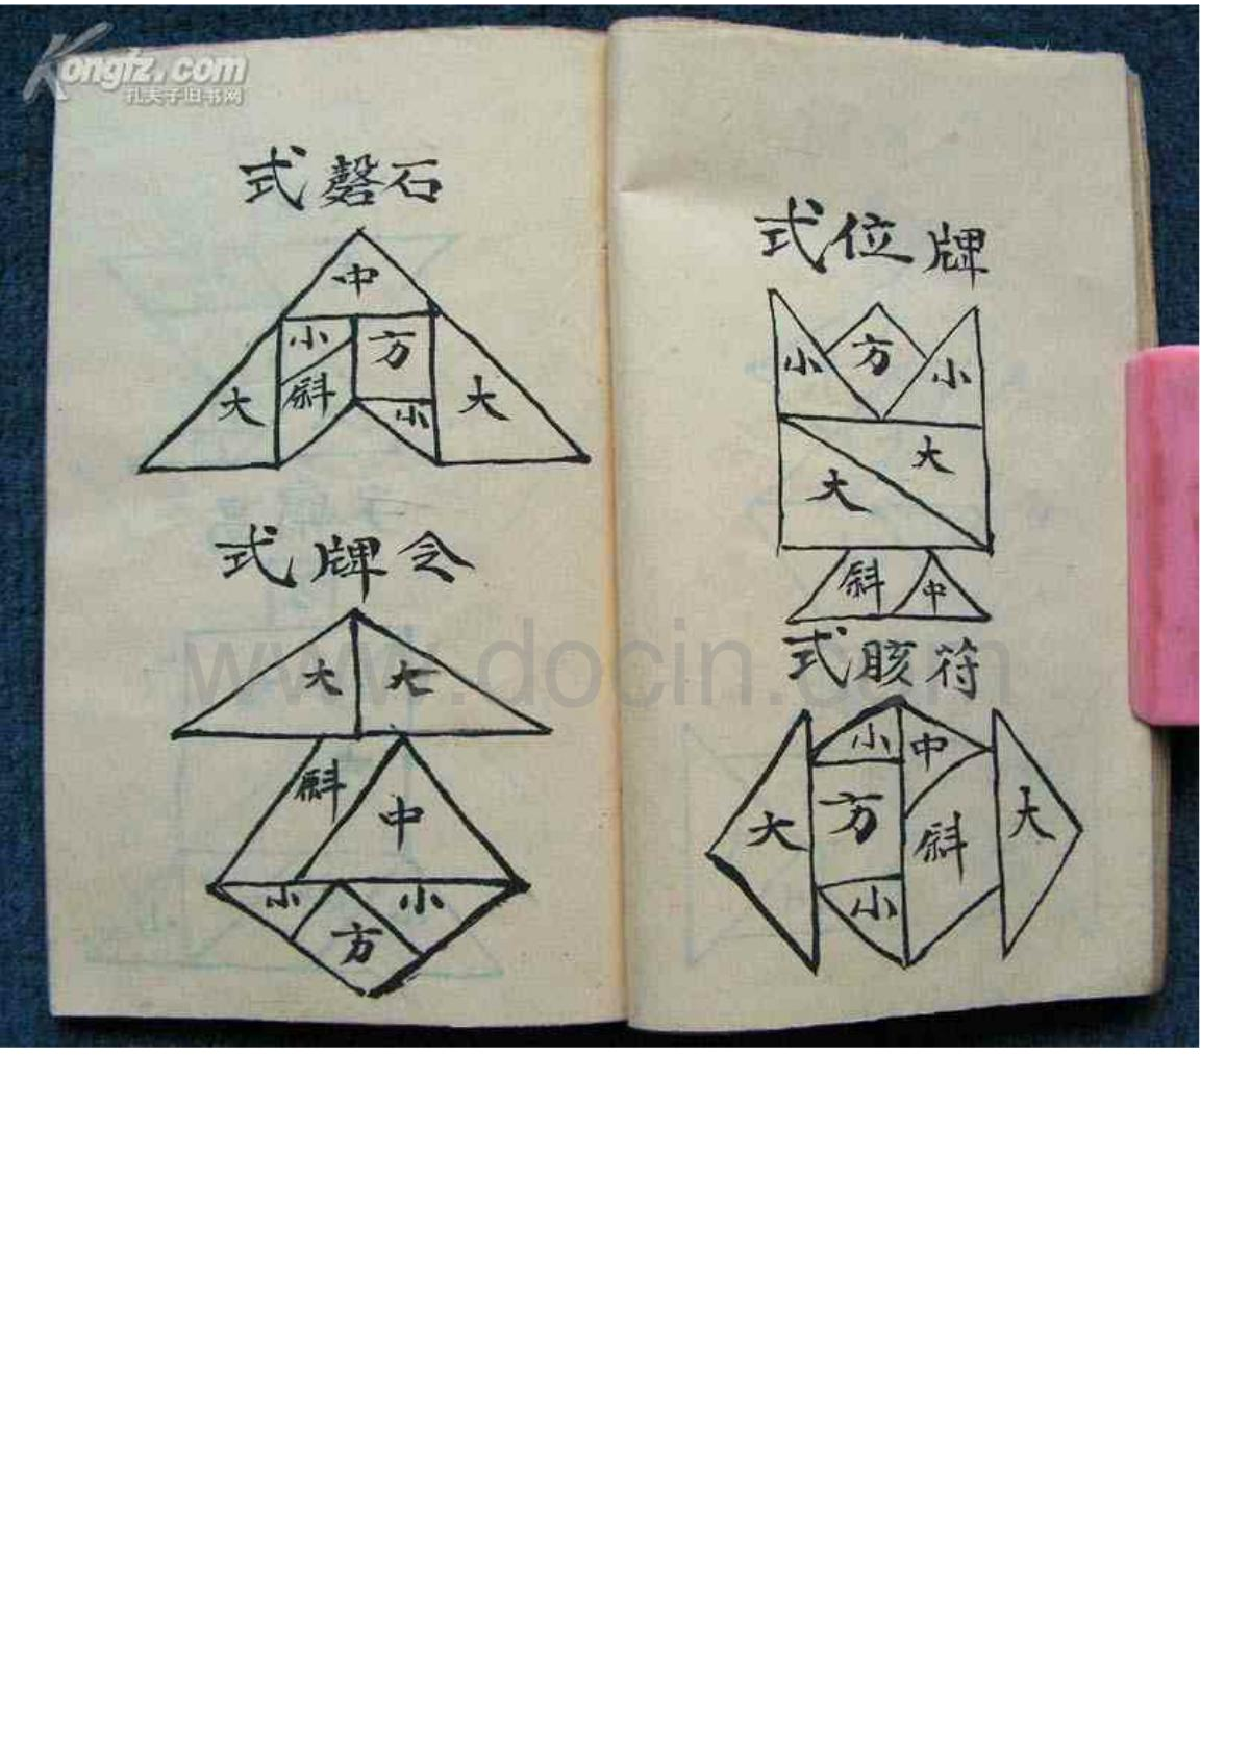 Kongfz.com
孔夫子旧书网
式位牌
小 方 小
大
大
斜 中
式胲符
小 中
大 方 斜 大
小
式磬石
中
小 方
大 斜 小 大
式牌令
大 大
斜
中
小 小
方
www.docin.com